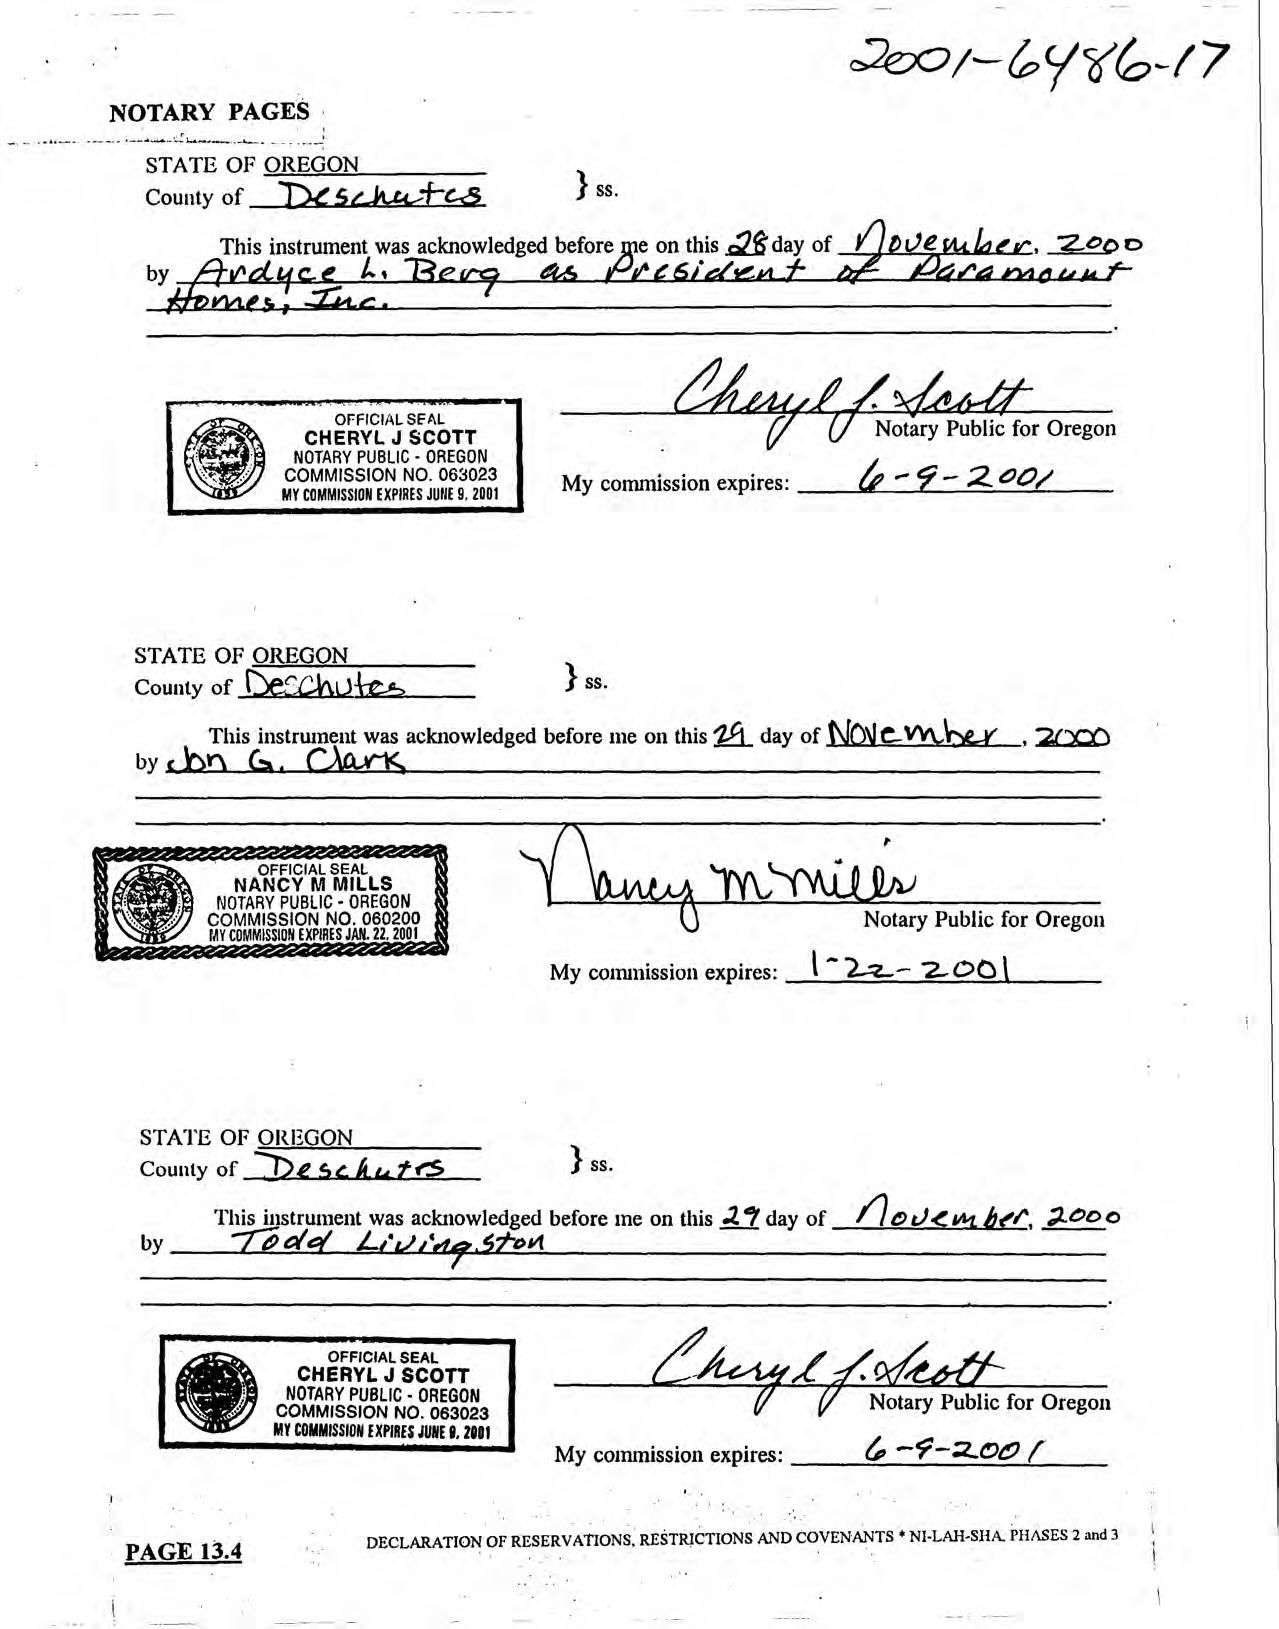 2001-6486-17
NOTARY PAGES
STATE OF OREGON
County of Deschutes } ss.
This instrument was acknowledged before me on this 28 day of November, 2000
by Ardyce L. Berg as President of Paramount
Homes, Inc.
Cheryl J. Scott
Notary Public for Oregon
OFFICIAL SEAL
CHERYL J SCOTT
NOTARY PUBLIC - OREGON
COMMISSION NO. 063023
MY COMMISSION EXPIRES JUNE 9, 2001
STATE OF OREGON
1859
My commission expires: 6-9-2001
STATE OF OREGON
County of Deschutes } ss.
This instrument was acknowledged before me on this 29 day of November, 2000
by Jon G. Clark
Nancy M Mills
Notary Public for Oregon
OFFICIAL SEAL
NANCY M MILLS
NOTARY PUBLIC - OREGON
COMMISSION NO. 060200
MY COMMISSION EXPIRES JAN. 22, 2001
STATE OF OREGON
1859
My commission expires: 1-22-2001
STATE OF OREGON
County of Deschutes } ss.
This instrument was acknowledged before me on this 29 day of November, 2000
by Todd Livingston
Cheryl J. Scott
Notary Public for Oregon
OFFICIAL SEAL
CHERYL J SCOTT
NOTARY PUBLIC - OREGON
COMMISSION NO. 063023
MY COMMISSION EXPIRES JUNE 9, 2001
My commission expires: 6-9-2001
PAGE 13.4
DECLARATION OF RESERVATIONS, RESTRICTIONS AND COVENANTS * NI-LAH-SHA PHASES 2 and 3